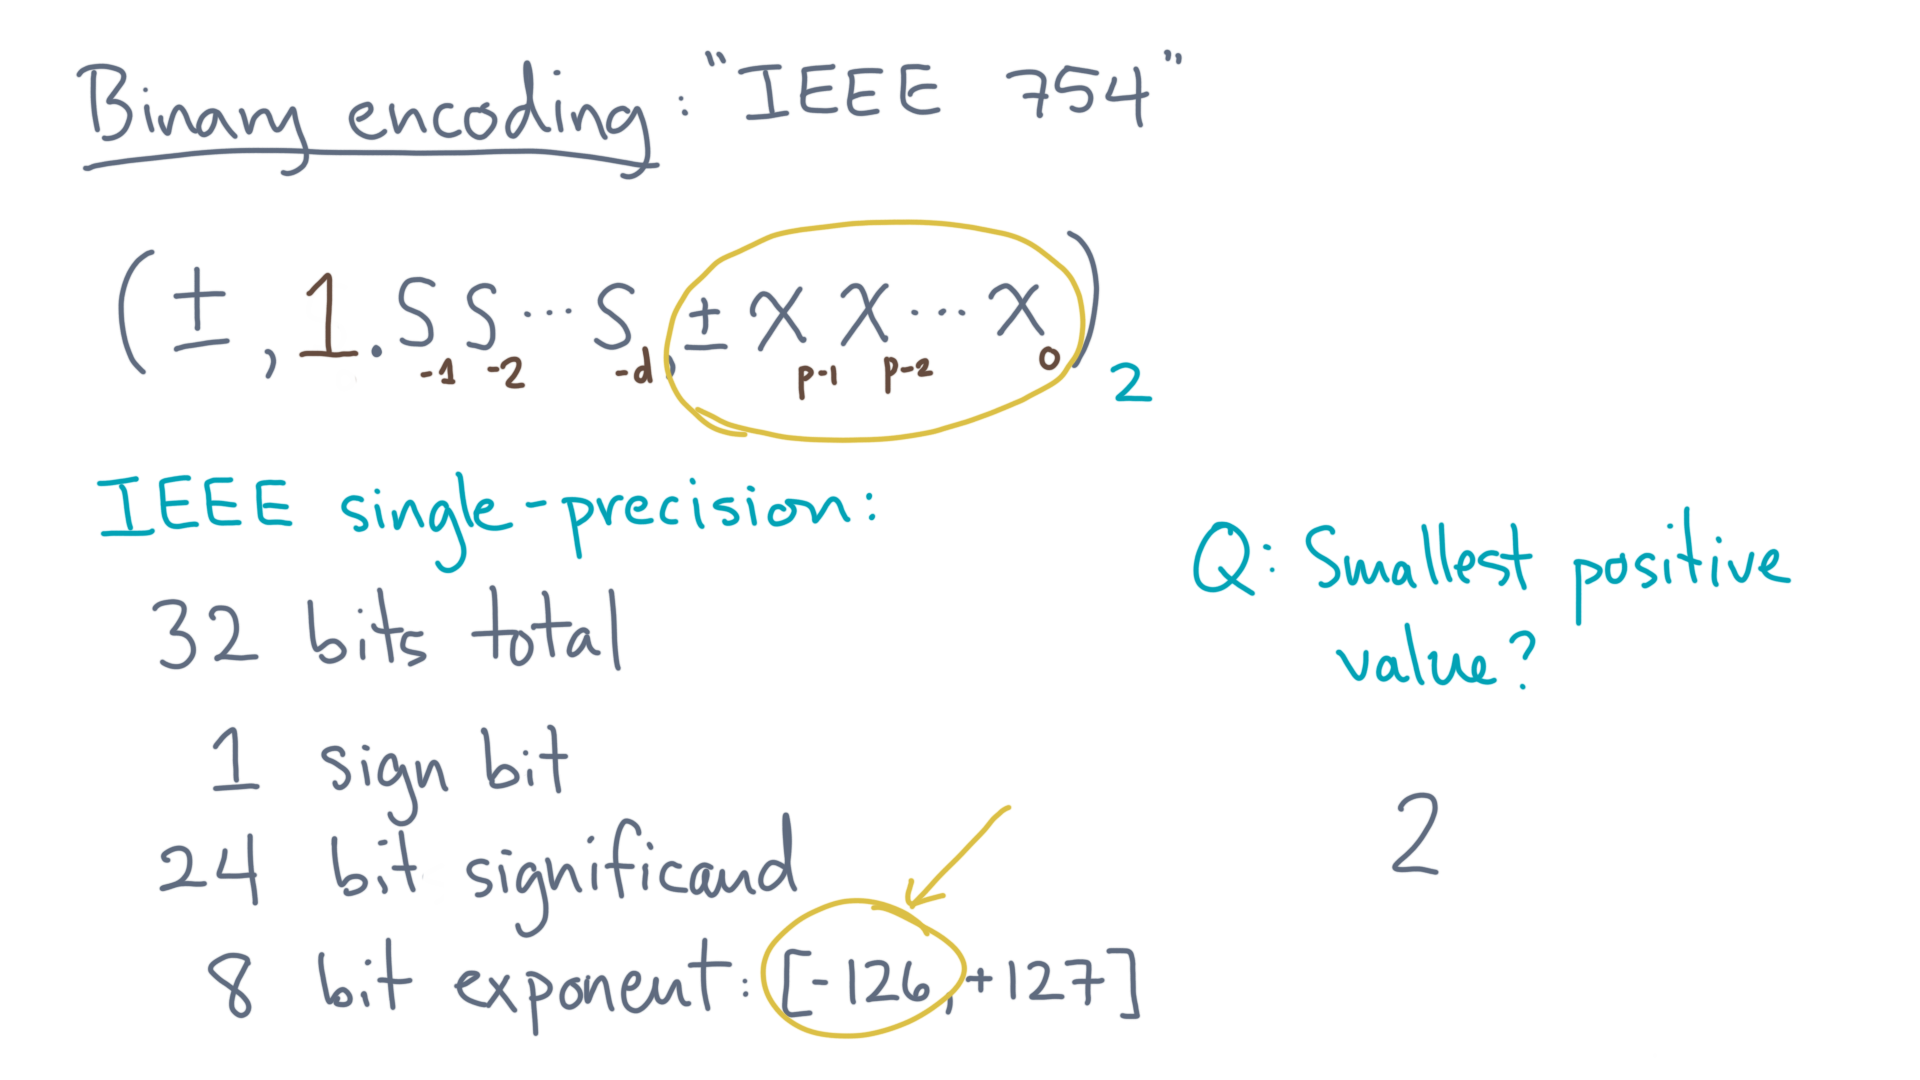 Binary encoding: "IEEE 754"
(±, 1.SS...S, ±XX...X)2
-1 -2 -d p-1 p-2 0
IEEE single-precision:
32 bits total
1 sign bit
24 bit significand
8 bit exponent: [-126, +127]
Q: Smallest positive
value?
2